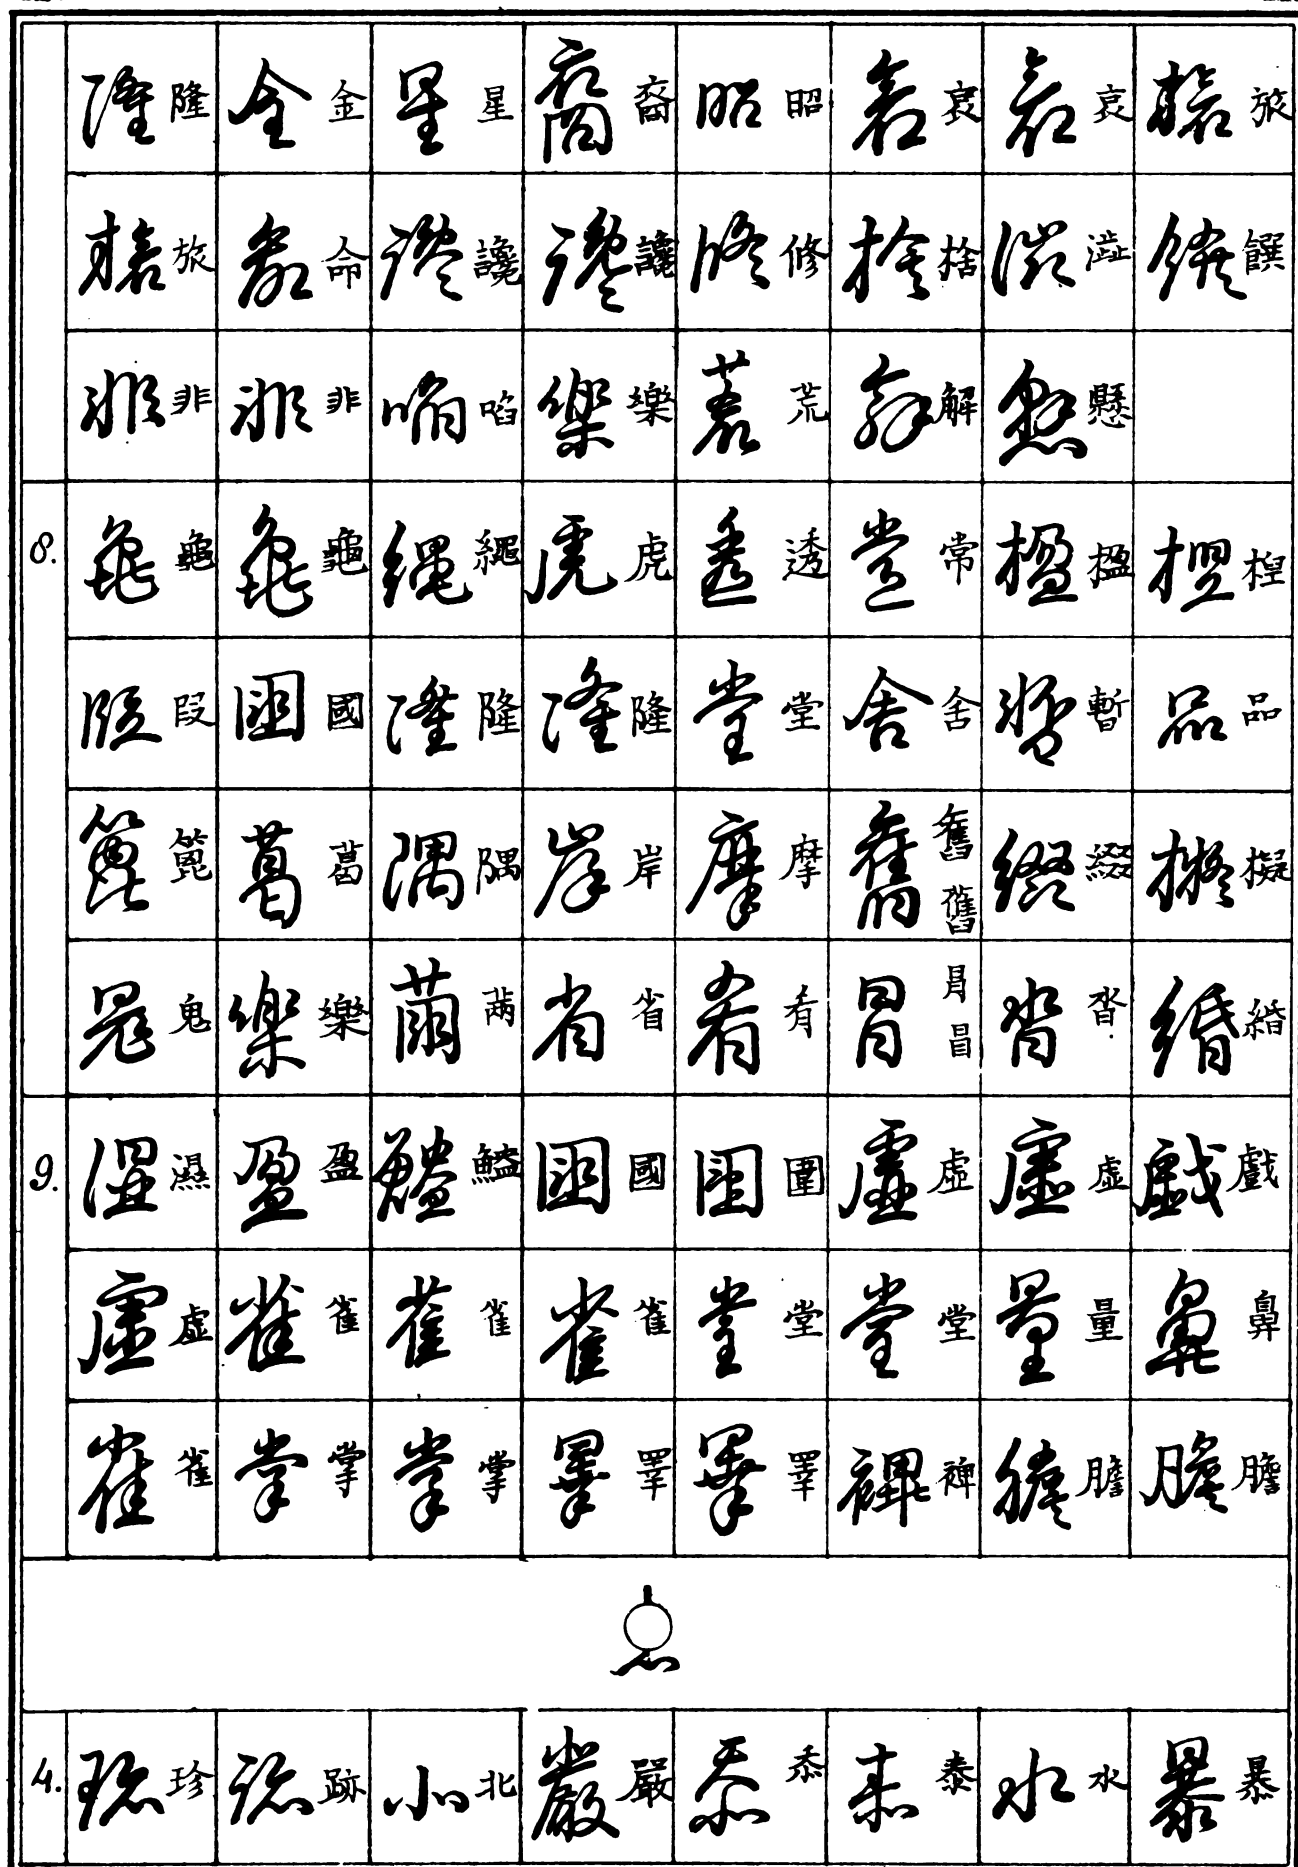 隆 金 星 裔 昭 哀 哀 旅
旅 命 讒 讒 修 捨 澁 饌
非 非 啗 樂 荒 解 懸
8. 龜 龜 繩 虎 透 常 楹 揑
段 國 隆 隆 堂 舍 暫 品
箆 葛 隅 岸 摩 奮 舊 綴 擬
鬼 樂 苪 省 肴 肙 昌 沓 緍
9. 濕 盈 鰪 國 圍 虛 虛 戲
虛 雀 雀 雀 堂 堂 量 鼻
雀 掌 掌 睪 睪 裨 膽 膽
4. 珍 跡 北 嚴 忝 泰 水 暴